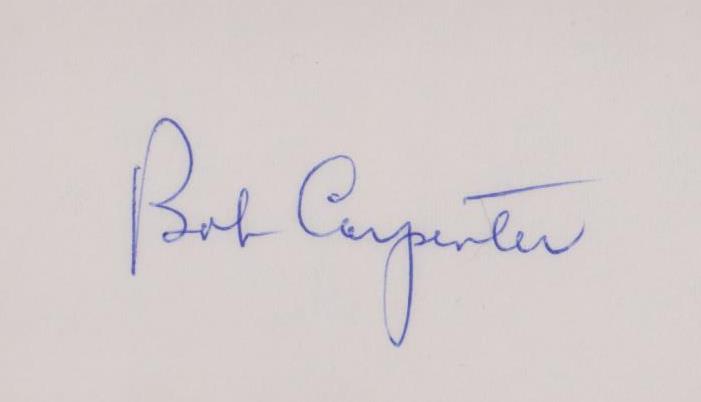 Bob Carpenter